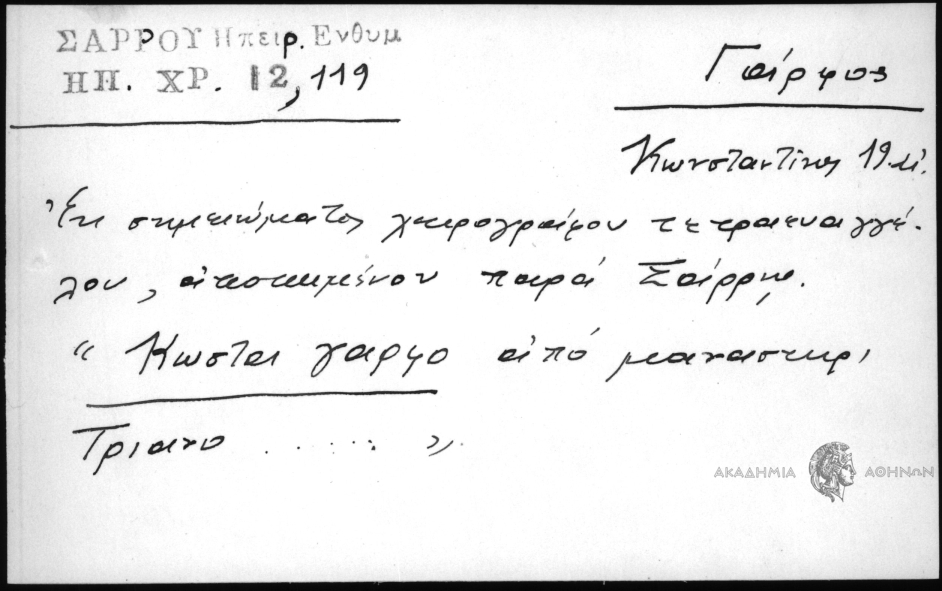 ΣΑΡΡΟΥ Ηπειρ. Ενθυμ
ΗΠ. ΧΡ. 12, 119
Γάρφος
Κωνσταντίνος 19 αἰ.
Ἐκ σημειώματος χειρογράφου τετραευαγγέ-
λου, ἀποκειμένου παρά Σάρρῃ.
“ Κωσται γαρφο ἀπό μαναστιρι
Τριανο ..... ”.
ΑΚΑΔΗΜΙΑ ΑΘΗΝΩΝ